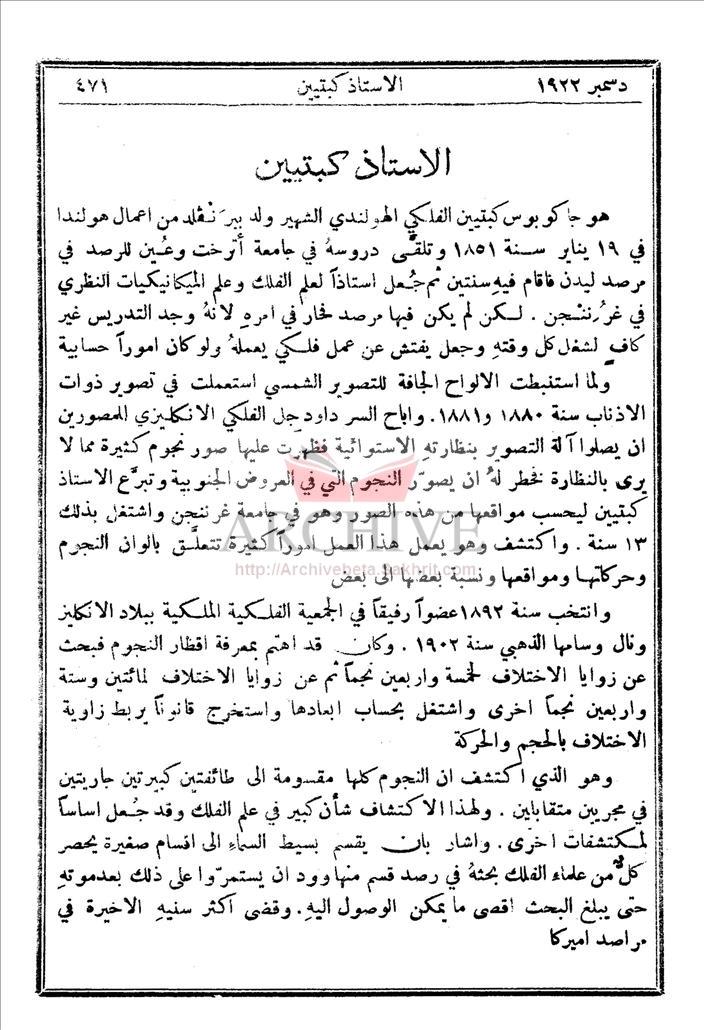 دسمبر ١٩٢٢ الاستاذ كبتيين ٤٧١
الاستاذ كبتيين
هو جاكوبوس كبتيين الفلكي الهولندي الشهير ولد ببرَنڤلد من اعمال هولندا
في ١٩ يناير سـنة ١٨٥١ وتلقَّى دروسهُ في جامعة أُترخت وعُين للرصد في
مرصد ليدن فاقام فيهِ سنتين ثم جُعل استاذاً لعلم الفلك وعلم الميكانيكيات النظري
في غرُننجن . لكن لم يكن فيها مرصد فحار في امرهِ لانهُ وجد التدريس غير
كافٍ لشغل كل وقتهِ وجعل يفتش عن عمل فلكي يعملهُ ولو كان اموراً حسابية
ولما استنبطت الالواح الجافة للتصوير الشمسي استعملت في تصوير ذوات
الاذناب سنة ١٨٨٠ و١٨٨١. واباح السر داود جل الفلكي الانكليزي للمصورين
ان يصلوا آلة التصوير بنظارتهِ الاستوائية فظهرت عليها صور نجوم كثيرة مما لا
يرى بالنظارة فخطر لهُ ان يصوّر النجوم التي في العروض الجنوبية وتبرَّع الاستاذ
كبتيين ليحسب مواقعها من هذه الصور وهو في جامعة غرننجن واشتغل بذلك
١٣ سنة . واكتشف وهو يعمل هذا العمل اموراً كثيرة تتعلَّق بالوان النجوم
وحركاتها ومواقعها ونسبة بعضها الى بعض
ARCHIVE
http://Archivebeta.Sakhrit.com
وانتخب سنة ١٨٩٢ عضواً رفيقاً في الجمعية الفلكية الملكية ببلاد الانكليز
ونال وسامها الذهبي سنة ١٩٠٢ . وكان قد اهتم بمعرفة اقطار النجوم فبحث
عن زوايا الاختلاف لخمسة واربعين نجماً ثم عن زوايا الاختلاف لمائتين وستة
واربعين نجماً اخرى واشتغل بحساب ابعادها واستخرج قانوناً يربط زاوية
الاختلاف بالحجم والحركة
وهو الذي اكتشف ان النجوم كلها مقسومة الى طائفتين كبيرتين جاريتين
في مجريين متقابلين . ولهذا الاكتشاف شأن كبير في علم الفلك وقد جُعل اساساً
لمكتشفات اخرى . واشار بان يقسم بسيط السماءِ الى اقسام صغيرة يحصر
كلٌّ من علماء الفلك بحثهُ في رصد قسم منها وود ان يستمرّوا على ذلك بعد موتهِ
حتى يبلغ البحث اقصى ما يمكن الوصول اليهِ. وقضى اكثر سنيهِ الاخيرة في
مراصد اميركا